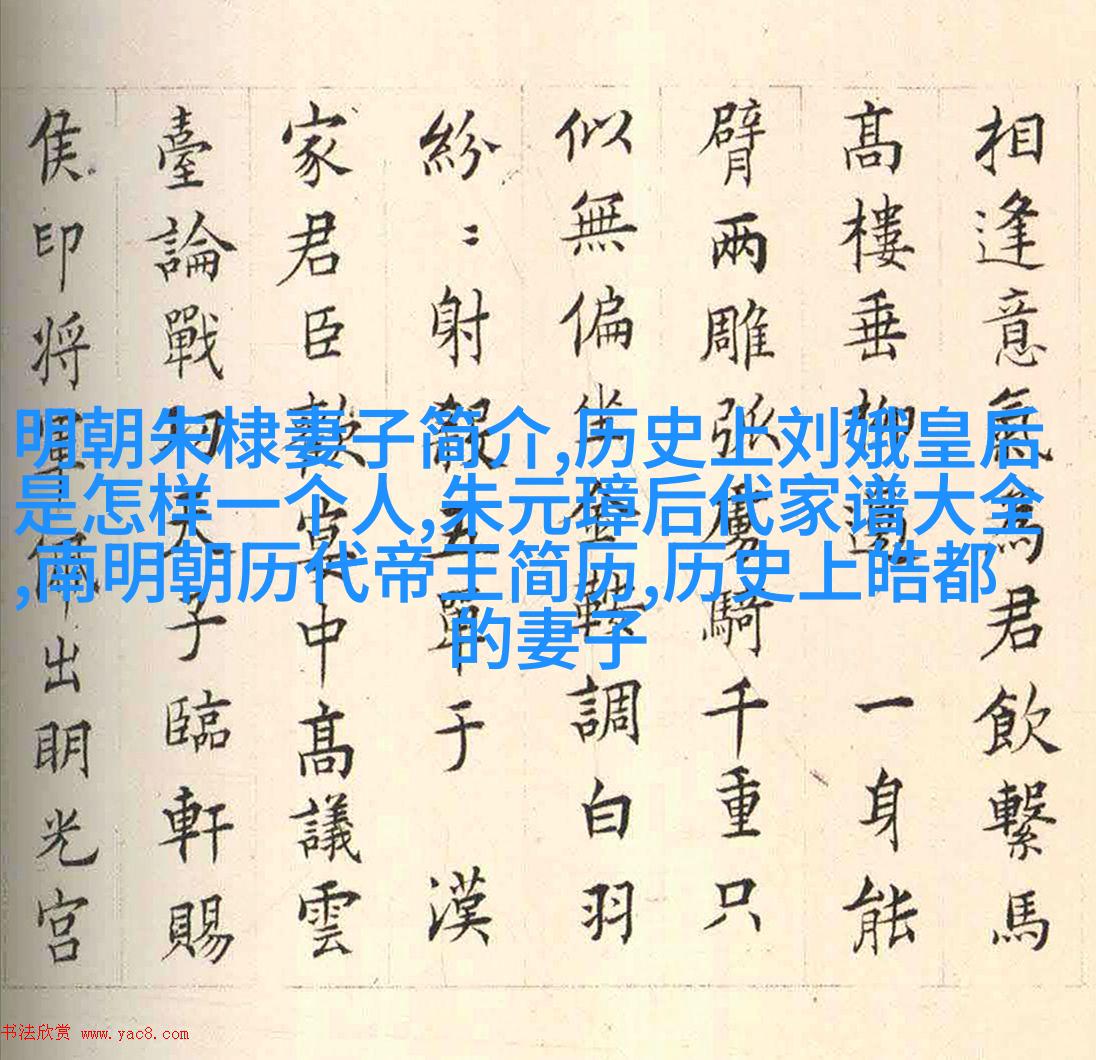 相逢意氣為君飲繫馬
高樓垂柳邊 一身能
臂兩雕弧虜騎千重只
似無偏坐金鞍調白羽
紛〻射殺五單于 漢
家君臣歡宴中高議雲
臺論戰功天子臨軒賜
侯印将軍佩出明光宮
明朝朱棣妻子简介,历史上刘娥皇后
是怎样一个人,朱元璋后代家谱大全
,南明朝历代帝王简历,历史上皓都
的妻子
书法欣赏 www.yac8.com